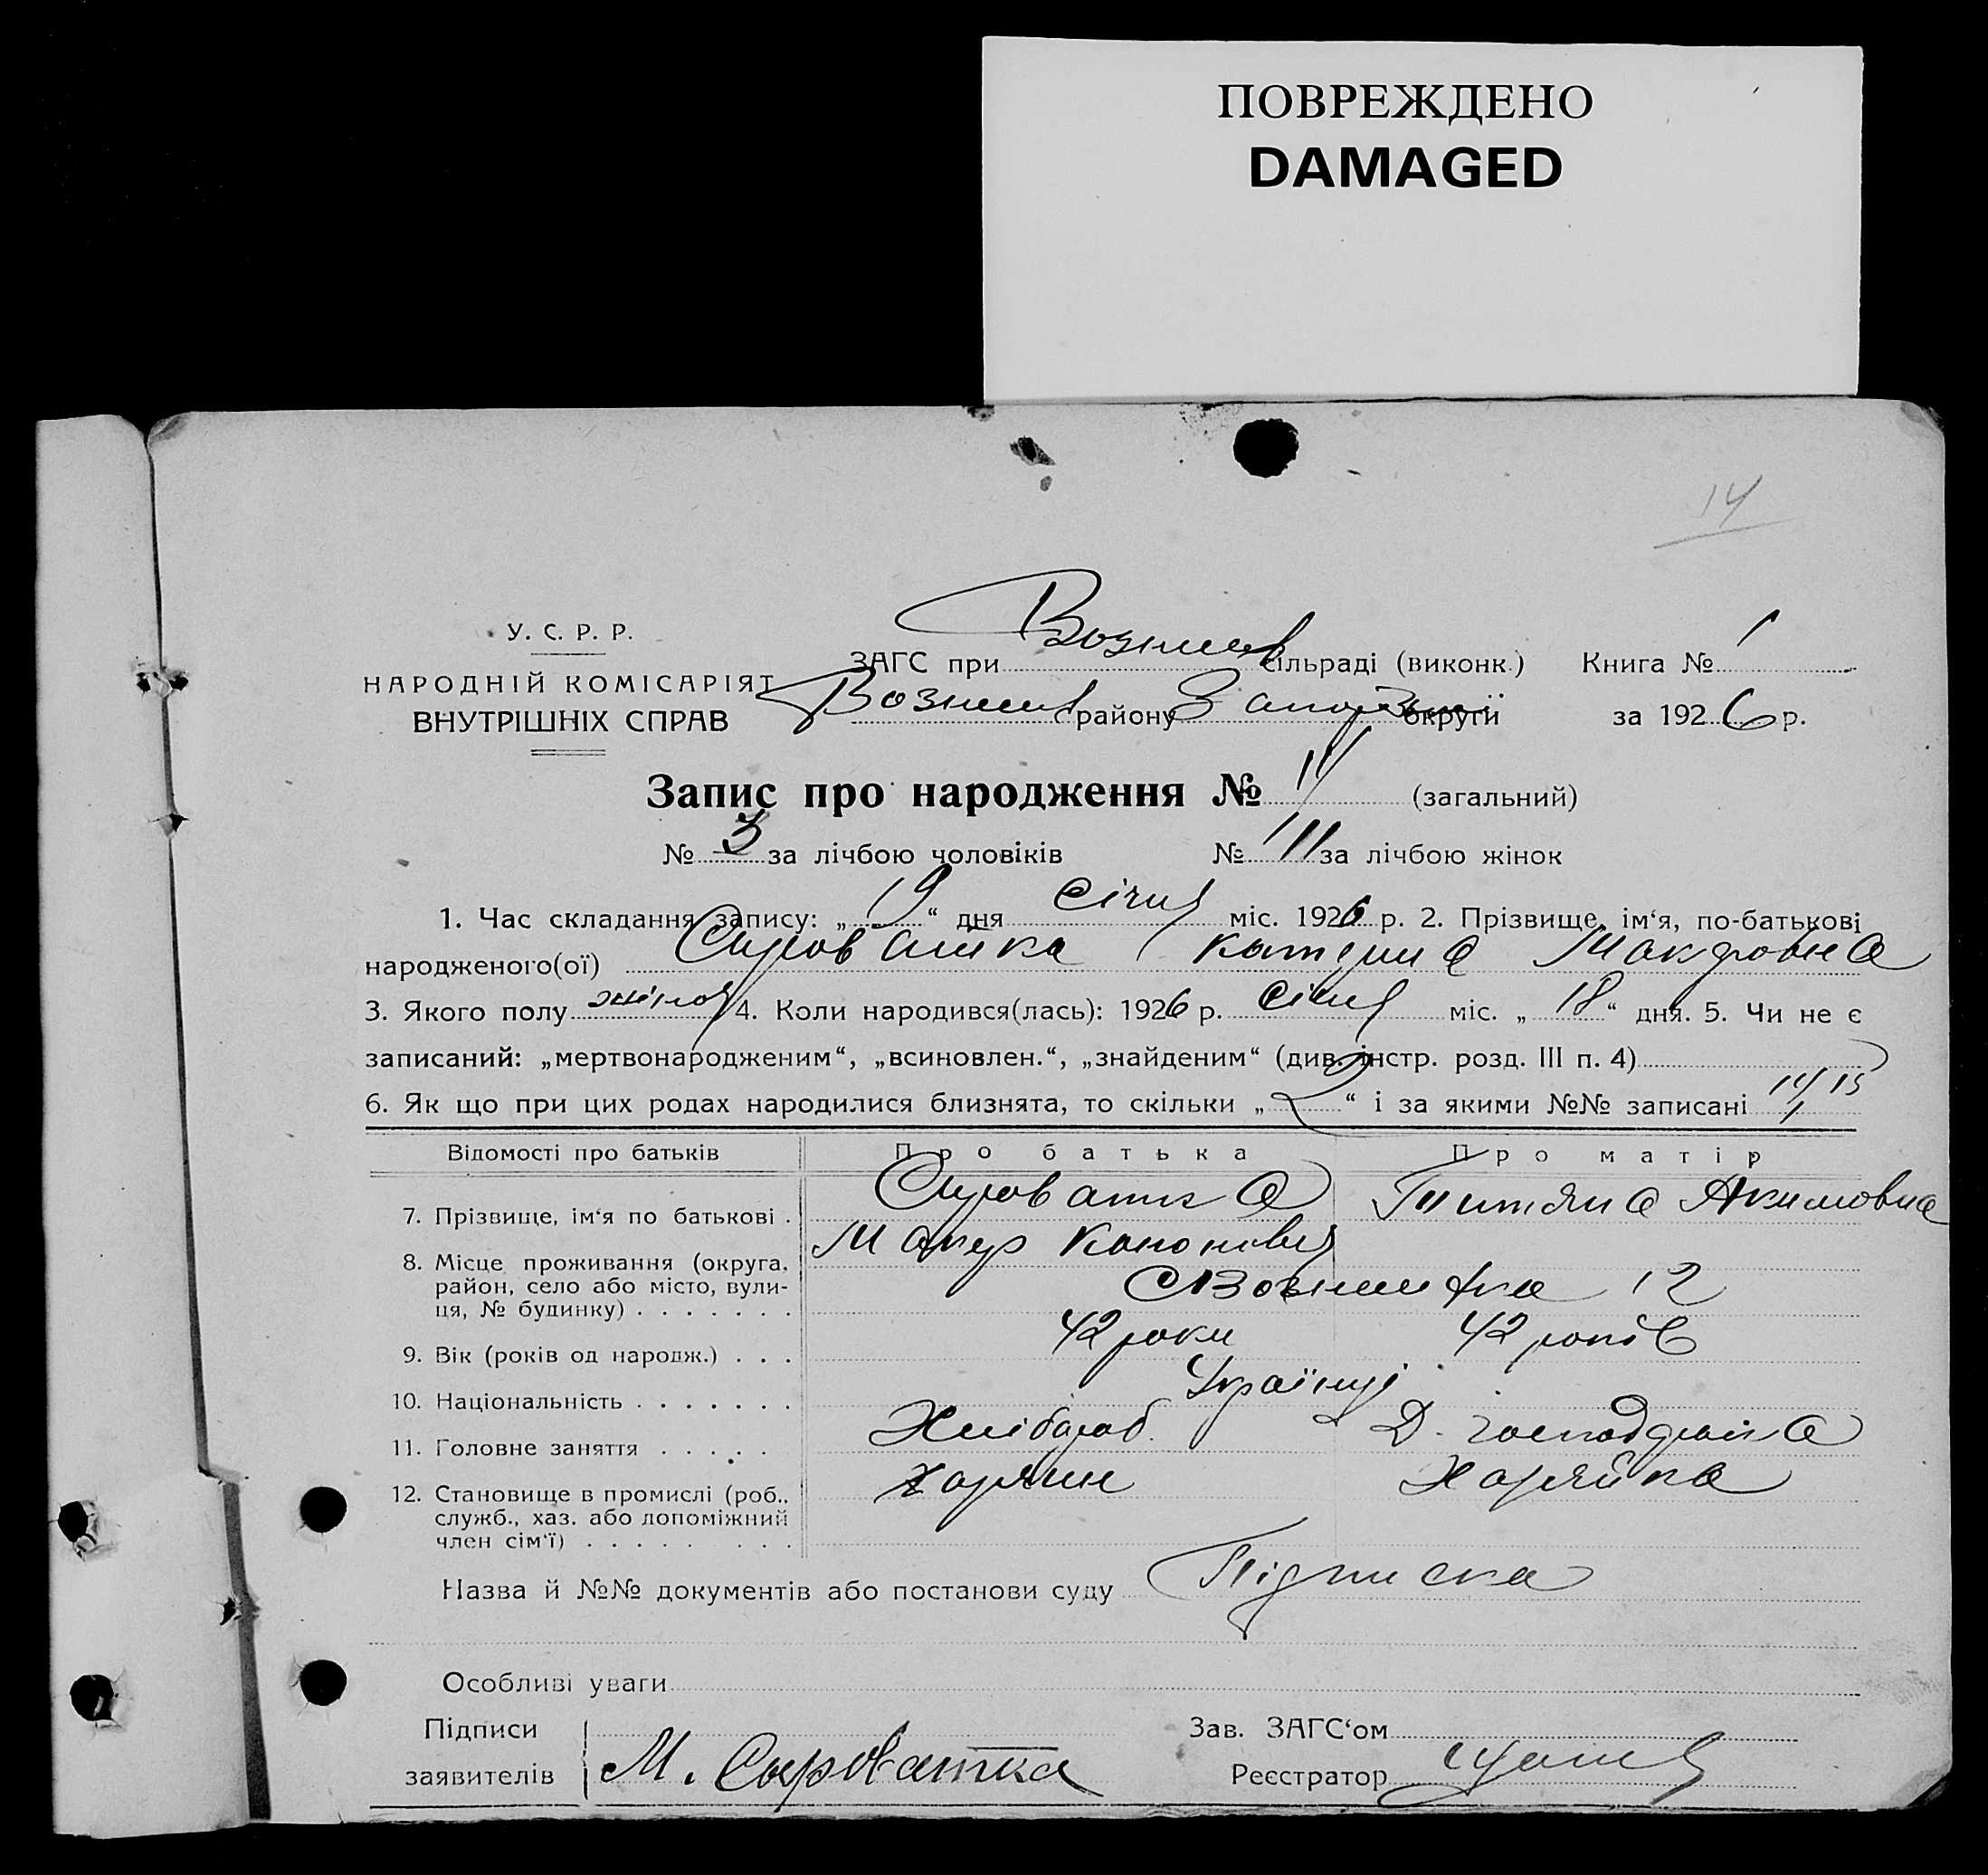 ПОВРЕЖДЕНО
DAMAGED
14
У. С. Р. Р.
НАРОДНІЙ КОМІСАРІЯТ
ВНУТРІШНІХ СПРАВ
ЗАГС при Вознесенс сільраді (виконк.) Книга № 1
району округи за 1926 р.
Запис про народження № (загальний)
№ 3 за лічбою чоловіків № 11 за лічбою жінок
1. Час складання запису: „19“ дня Січня міс. 1926 р. 2. Прізвище, ім‘я, по-батькові
народженого(ої) Сироватка Катерина Макаровна
3. Якого полу жіноч 4. Коли народився(лась): 1926 р. Січня міс. „18“ дня. 5. Чи не є
записаний: „мертвонародженим“, „всиновлен.“, „знайденим“ (див. інстр. розд. III п. 4)
6. Як що при цих родах народилися близнята, то скільки „2“ і за якими №№ записані 14, 15
Відомості про батьків Про батька Про матір
7. Прізвище, ім‘я по батькові . Сироватка Титяна Акимовна
Макар Кононович
8. Місце проживання (округа, район, село або місто, вули-ця, № будинку) . . . . . . . 12
9. Вік (років од народж.) . . . 42 роки 42 років
10. Національність . . . . . . . Українці
11. Головне заняття . . . . . Хлібороб. Д. господарка
12. Становище в промислі (роб., служб., хаз. або допоміжний член сім‘ї) . . . . . . . . Хазяин Хазяйка
Назва й №№ документів або постанови суду Підписка
Особливі уваги
Підписи
заявителів М. Сыроватка
Зав. ЗАГС‘ом
Реєстратор